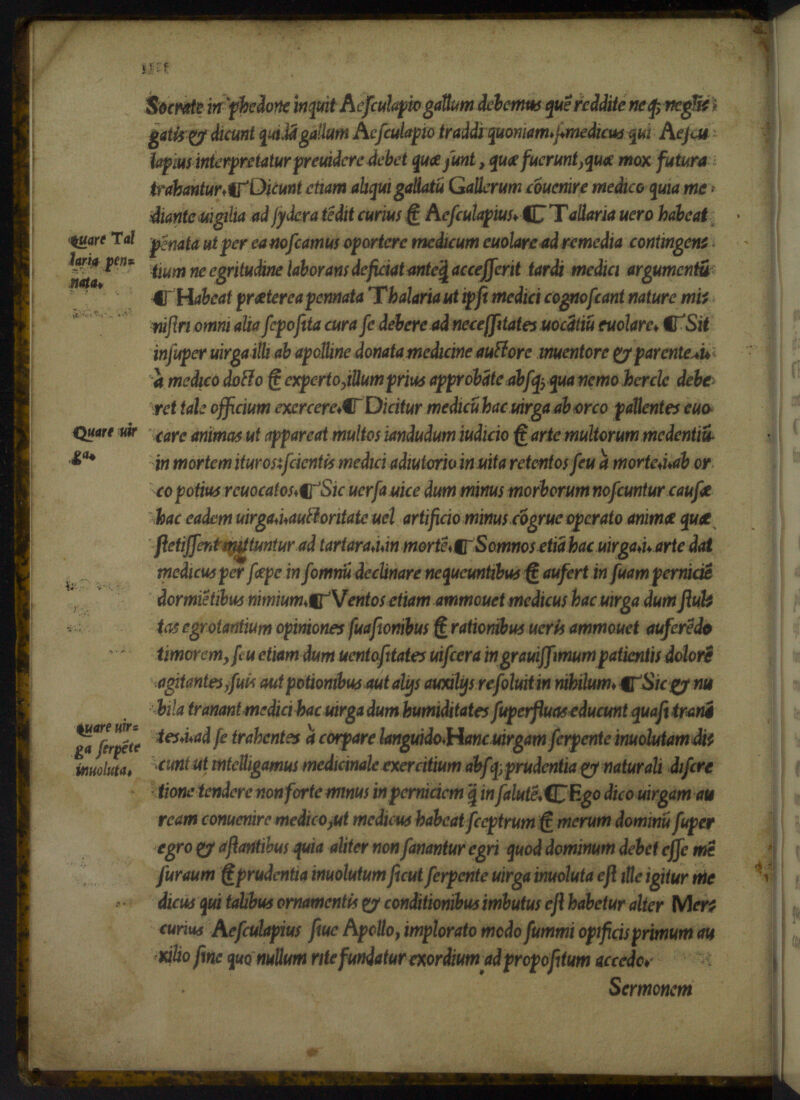 Socrate in phedone inquit Aesculapio gallum debemus quē reddite neq; neglis
gatis & dicunt quidā gallum Aesculapio traddi quoniam.s.medicus qui Aescu
lapius interpretatur preuidere debet quæ sunt, quæ fuerunt, quæ mox futura
trahantur. ¶ Dicunt etiam aliqui gallatū Gallerum cōuenire medico quia me
diante uigilia ad sydera tēdit curius & Aesculapius. ¶ Tallaria uero habeat
Quare Tal
laria pen=
nata.
pēnata ut per ea noscamus oportere medicum euolare ad remedia contingens
tium ne egritudine laborans deficiat anteq̄ accesserit tardi medici argumentū
¶ Habeat præterea pennata Thalaria ut ipsi medici cognoscant nature mis
nistri omni alia seposita cura se debere ad necessitates uocātiū euolare. ¶ Sit
insuper uirga illi ab apolline donata medicine auctore inuentore & parente.i.
a medico docto & experto, illum prius approbāte absq; qua nemo hercle debe
ret tale officium exercere. ¶ Dicitur medicū hac uirga ab orco pallentes euo
Quare uir
ga.
care animas ut appareat multos iandudum iudicio & arte multorum medentiū
in mortem ituros: scientis medici adiutorio in uita retentos seu a morte.i.ab or
co potius reuocatos. ¶ Sic uersa uice dum minus morborum noscuntur causæ
hac eadem uirga.i.auctoritate uel artificio minus cōgrue operato animæ quæ
stetissent mittuntur ad tartara.i.in mortē. ¶ Somnos etiā hac uirga.i. arte dat
medicus per sæpe in somnū declinare nequeuntibus & aufert in suam pernicië
dormiētibus nimium. ¶ Ventos etiam ammouet medicus hac uirga dum stuls
tas egrotantium opiniones suasionibus & rationibus ueris ammouet auferēdo
timorem, seu etiam dum uentositates uiscera in grauissimum patientis dolorē
agitantes, suis aut potionibus aut alijs auxilijs resoluit in nihilum. ¶ Sic & nu
bila tranant medici hac uirga dum humiditates superfluas educunt quasi tranā
Quare uir=
ga serpēte
inuoluta.
tes.i.ad se trahentes a corpare languido. Hanc uirgam serpente inuolutam dis
cunt ut intelligamus medicinale exercitium absq; prudentia & naturali discre
tione tendere non forte minus in perniciem q̄ in salutē. ¶ Ego dico uirgam au
ream conuenire medico, ut medicus habeat sceptrum & merum dominū super
egro & astantibus quia aliter non sanantur egri quod dominum debet esse mē
suraum & prudentia inuolutum sicut serpente uirga inuoluta est ille igitur me
dicus qui talibus ornamentis & conditionibus imbutus est habetur alter Mers
curius Aesculapius siue Apollo, implorato modo summi opificis primum au
xilio sine quo nullum rite fundatur exordium ad propositum accedo.
Sermonem